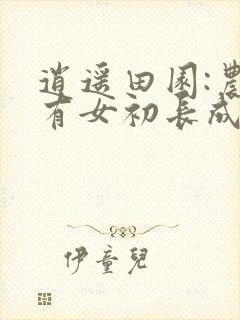 逍遥田園:農
有女初長成
伊童兒